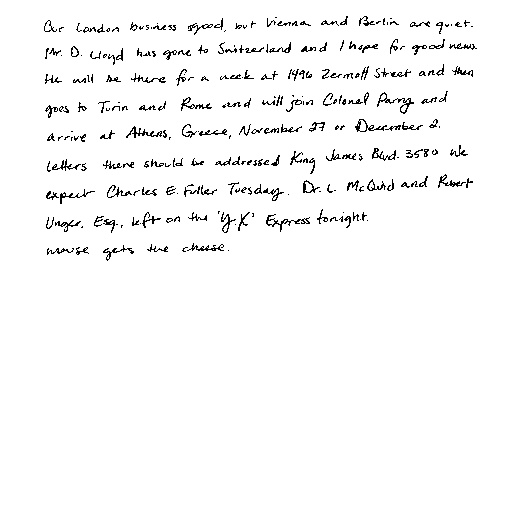 Our London business is good, but Vienna and Berlin are quiet.
Mr. D. Lloyd has gone to Switzerland and I hope for good news.
He will be there for a week at 1496 Zermott Street and then
goes to Turin and Rome and will join Colonel Parry and
arrive at Athens, Greece, November 27 or December 2.
Letters there should be addressed King James Blvd. 3580 We
expect Charles E. Fuller Tuesday. Dr. L. McQuid and Robert
Unger, Esq., left on the "Y.X" Express tonight.
mouse gets the cheese.